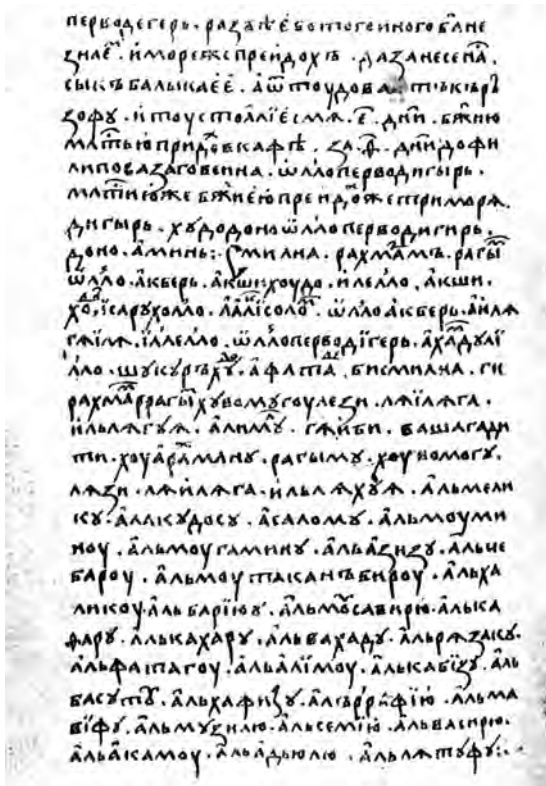 перводегерь · разꙋмѣе бо того иного бл҃не
ꙁнаеⷨ · и море же преидохъ · да ꙁанесе наⷭ҇
сыкъ балыкаеѐ · а ѿтоудова тъкъръ
ꙁофꙋ · и тоу стоꙗлі есмѧ · е҃ · днїи · бж҃ию
млⷭ҇тью придоⷯ в кафѣ · ꙁа · ѳ҃ · днїи до фи
липова ꙁаговеина · ѡлло перводигырь ·
млⷭ҇тию же бж҃иею преидоⷯ же три морѧ ·
дигырь · хꙋдо доно ѡлло перводигирь ·
доно · аминь :· смилна · рахмамъ · рагыⷨ
ѡлло · акберь · акши хоудо · илелло · акши ·
хоⷣо · іса рꙋхолло · аалиⷦсолоⷨ · ѡлло акберь · аилѧ
гѧілѧ · іллелло · ѡлло перводїгерь · ахамⷣдꙋ лі
лло · шꙋкꙋръ хꙋⷣо · афатаⷣ · бисмилна · ги
рахмаⷨррагыⷨ хꙋво мꙋгоу леꙁи · лѧілѧга ·
ильлѧгꙋѧ · алимꙋⷧ · гѧиби · вашагади
ти · хоуараⷯманꙋ · рагымꙋ · хоувомогꙋ ·
лѧꙁи · лѧилѧга · ильлѧхꙋѧ · альмели
кꙋ · алакꙋдосꙋ · асаломꙋ · альмоуми
ноу · альмоугаминꙋ · альаꙁиꙁꙋ · альче
бароу · альмоутаканъбироу · альха
ликоу · альбаріюꙋ · альмоⷹсавирю · алька
фарꙋ · алькахарꙋ · альвахадꙋ · альрѧꙁакꙋ ·
альфатагоу · альалїмоу · алькабїꙁꙋ · аль
басꙋтꙋ · альхафиꙁꙋ · алъррафїю · альма
віфꙋ · альмꙋꙁилю · альсемїю · альвасирю ·
альакамоу · альадьюлю · альлѧтꙋфꙋ :·